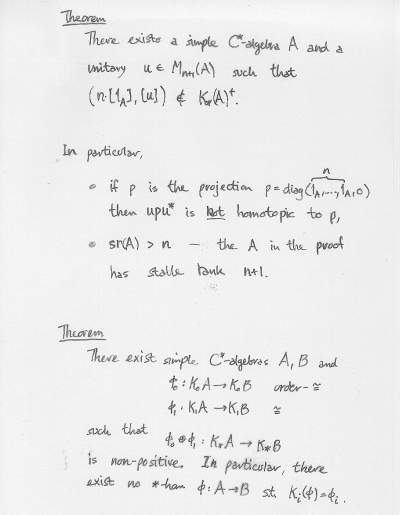 Theorem
There exists a simple C*-algebra A and a
unitary u ∈ Mₙ₊₁(A) such that
(n·[1_A], [u]) ∉ K_*(A)⁺.
In particular,
n
• if p is the projection p = diag(1_A,...,1_A,0)
then upu* is not homotopic to p,
• sr(A) > n — the A in the proof
has stable rank n+1.
Theorem
There exist simple C*-algebras A, B and
ϕ₀ : K₀A → K₀B order-≅
ϕ₁ : K₁A → K₁B ≅
such that
ϕ₀ ⊕ ϕ₁ : K_*A → K_*B
is non-positive. In particular, there
exist no *-hom ϕ: A → B st. K_i(ϕ) = ϕ_i.